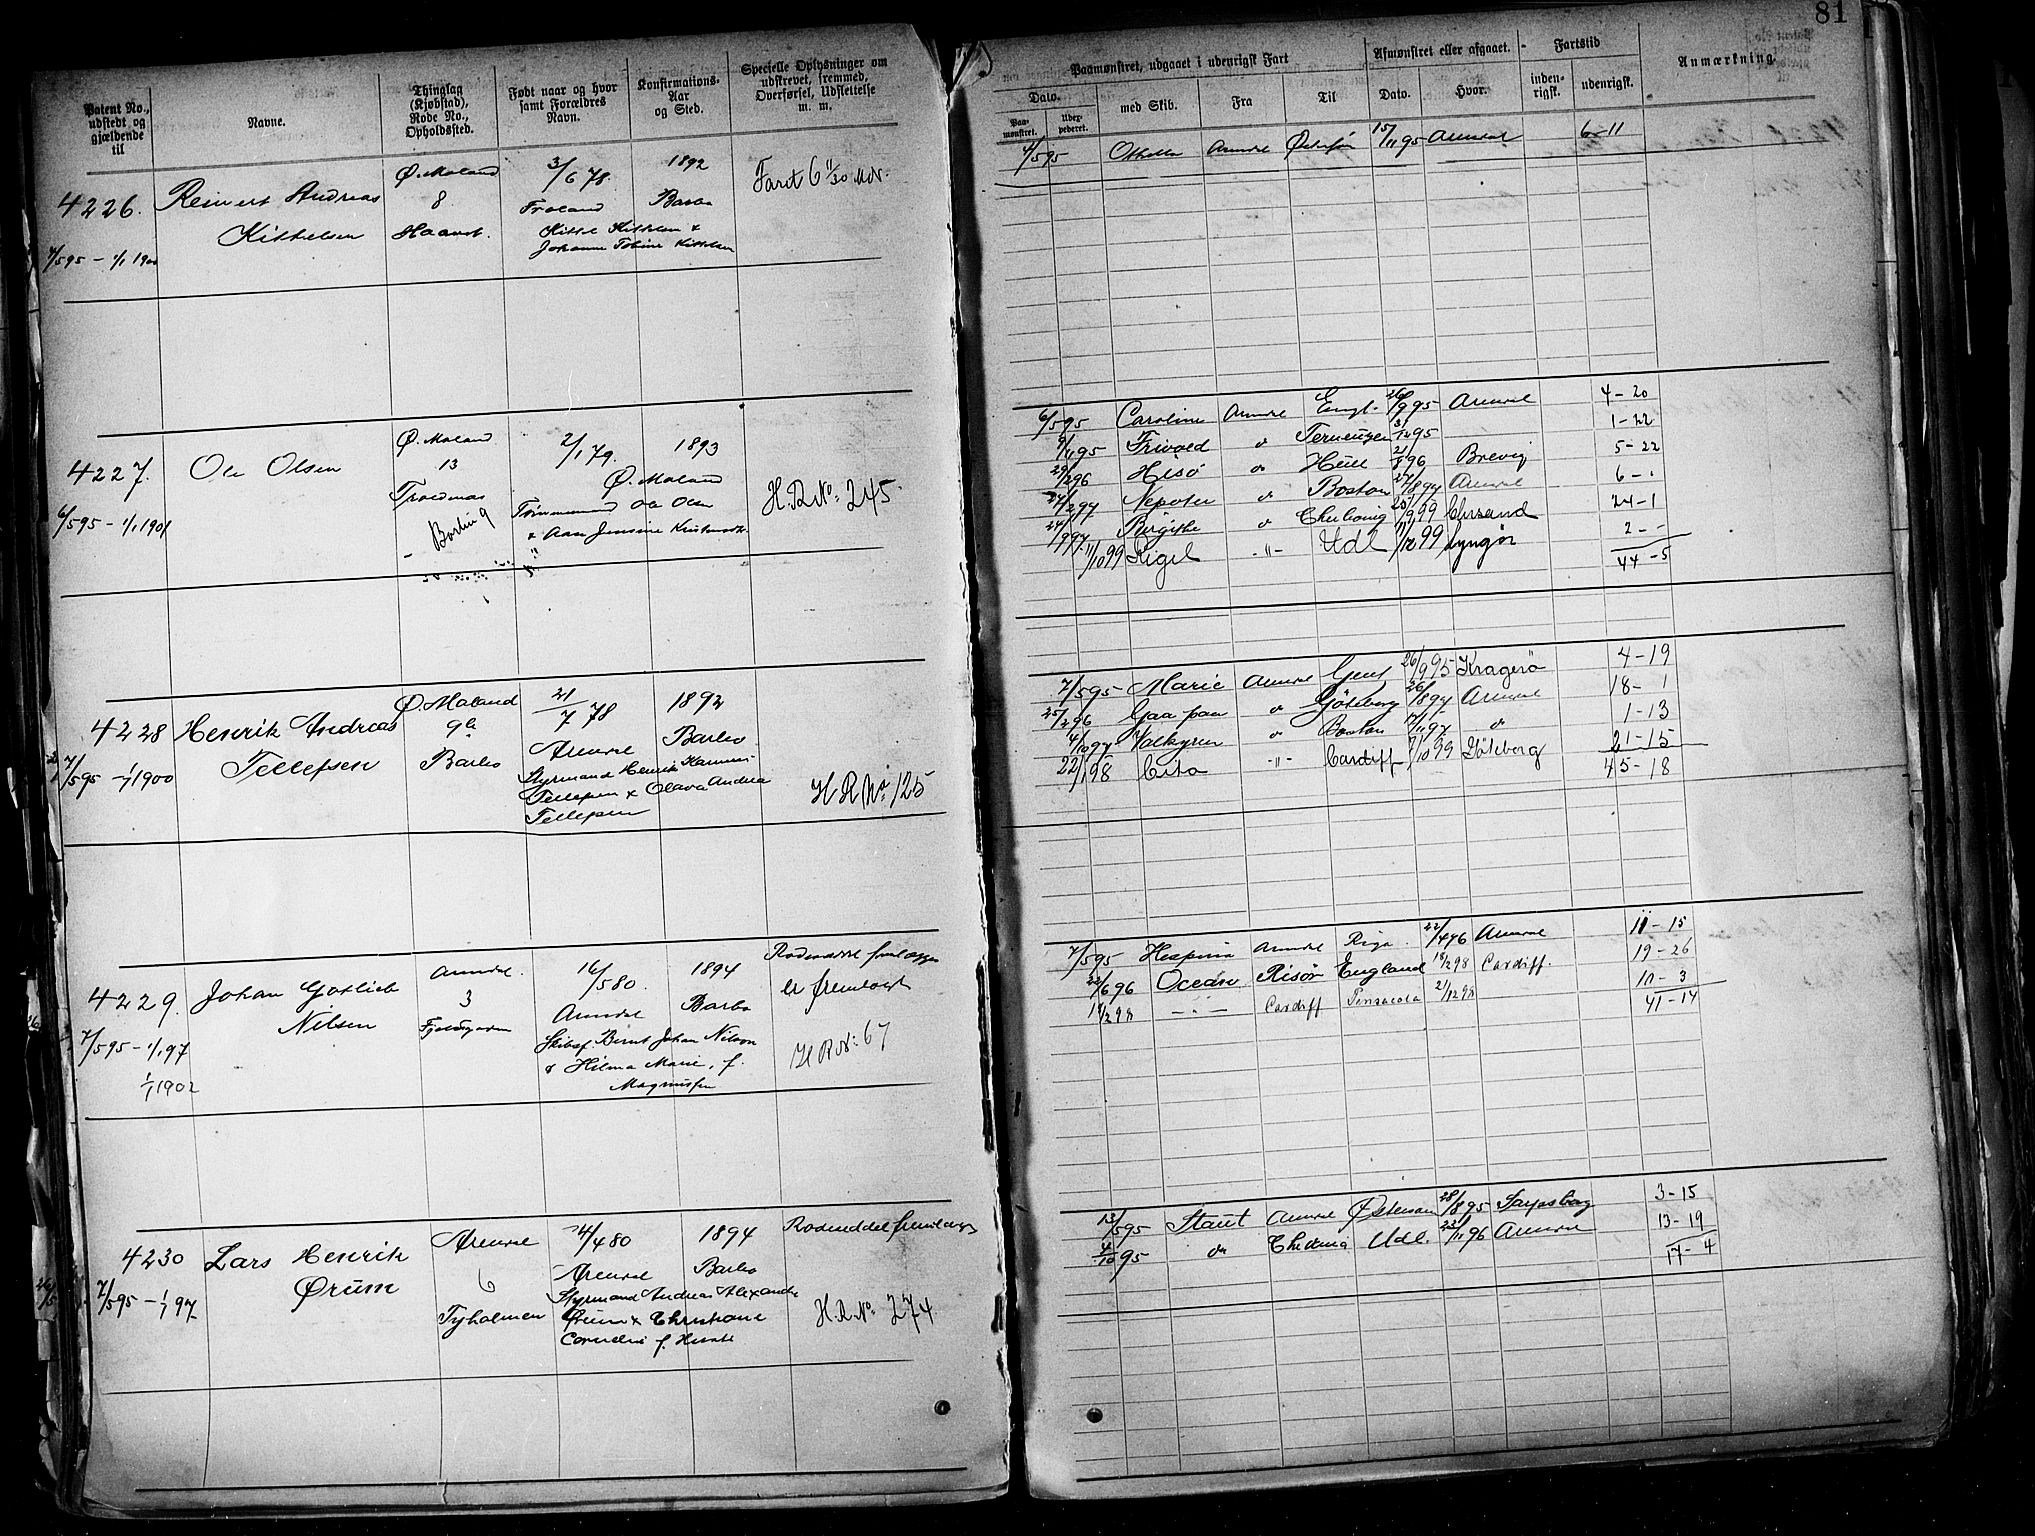 81
Patent No., udstedt og gjældende til
Navne.
Thinglag (Kjøbstad), Rode No., Opholdssted.
Født naar og hvor samt Forældres Navn.
Konfirmations- Aar og Sted.
Specielle Oplysninger om udskrevet, fremmed, Overførsel, Udslettelse m. m.
Paamønstret, udgaaet i udenrigsk Fart
Dato.
Paa- mønstret.
Udex- pederet.
med Skib.
Fra
Til
Afmønstret eller afgaaet.
Dato.
Hvor.
Fartstid
inden- rigsk.
udenrigsk.
Anmærkning.
4226.
7/5 95 – 1/1 1900
Reinert Andreas
Kittelsen
Ø. Moland
8
3/6 78.
Froland
Kittel Kittelsen &
Johanne Tobine Kittelsen
1892
Barbo
Faret 6 11/30 Mdr.
4/5 95 Othello Arendal Østersjøn 15/11 95 Arendal 6–11
4227.
6/5 95 – 1/1 1901
Ole Olsen
Ø. Moland
13
Barbu 9
2/1 79.
Ø. Moland
Tømmermand Ole Olsen
1893
H.R.No: 245.
6/5 95 Caroline Arendal Engl. 26/9 95 Arendal 4–20
9/11 95 Frivold do Terneuzen 31/12 95 1–22
29/2 96 Hisø do Hull 21/8 96 Brevig 5–22
24/2 97 Nepotes do Boston 27/8 97 Arendal 6–
24/9 97. Birgitte do 25/9 99 Chrsand 24–1
11/10 99 Rigel –"– Udl /12 99 Lyngør 2–-
44–5
4228
7/5 95 – 1/1 1900
Henrik Andreas
Tellefsen
Ø. Moland
9a
Barbo
21/7 78
Arendal
Styrmand Henrik
Tellefsen & Olava Andrea
Tellefsen
1892
Barbo
H R No 125
7/5 95 Marie Arendal Gent 26/9 95 Kragerø 4–19
25/2 96 Gaa paa do Göteborg 26/8 97 Arendal 18–1
4/10 97 Valkyrien do Boston 17/11 97 do 1–13
22/1 98 Cito –"– Cardiff 7/10 99 Göteborg 21–15
45–18
4229.
7/5 95 – 1/1 97
1/1 1902
Johan Gotlieb
Nilsen
Arendal.
3
16/5 80.
Arendal
Skibsf. Bernt Johan Nilsen
& Hilma Marie, f.
Magnussen
1894
Barbo
er fremlagt
H R No: 67
7/5 95 Hesperia Arendal Riga. 22/4 96 Arendal 11–15
22/6 96 Ocean Risør England 18/2 98 Cardiff. 19–26
19/2 98 –"– Cardiff Pensacola 21/12 98 10–3
41–14
4230
7/5 95 – 1/1 97
Lars Henrik
Ørum
Arendal
6
Tyholmen
4/4 80
Arendal
Styrmand Andreas Alexander
Ørum & Christiane
Cornelia f.
1894
Barbo
Rodeseddel fremlagt
H.R.No: 274
13/5 95 Staut Arendal Østersøen 28/8 95 Sarpsborg 3–15
4/10 95 do Christiania Udl. 23/11 96 Arendal 13–19
17–4